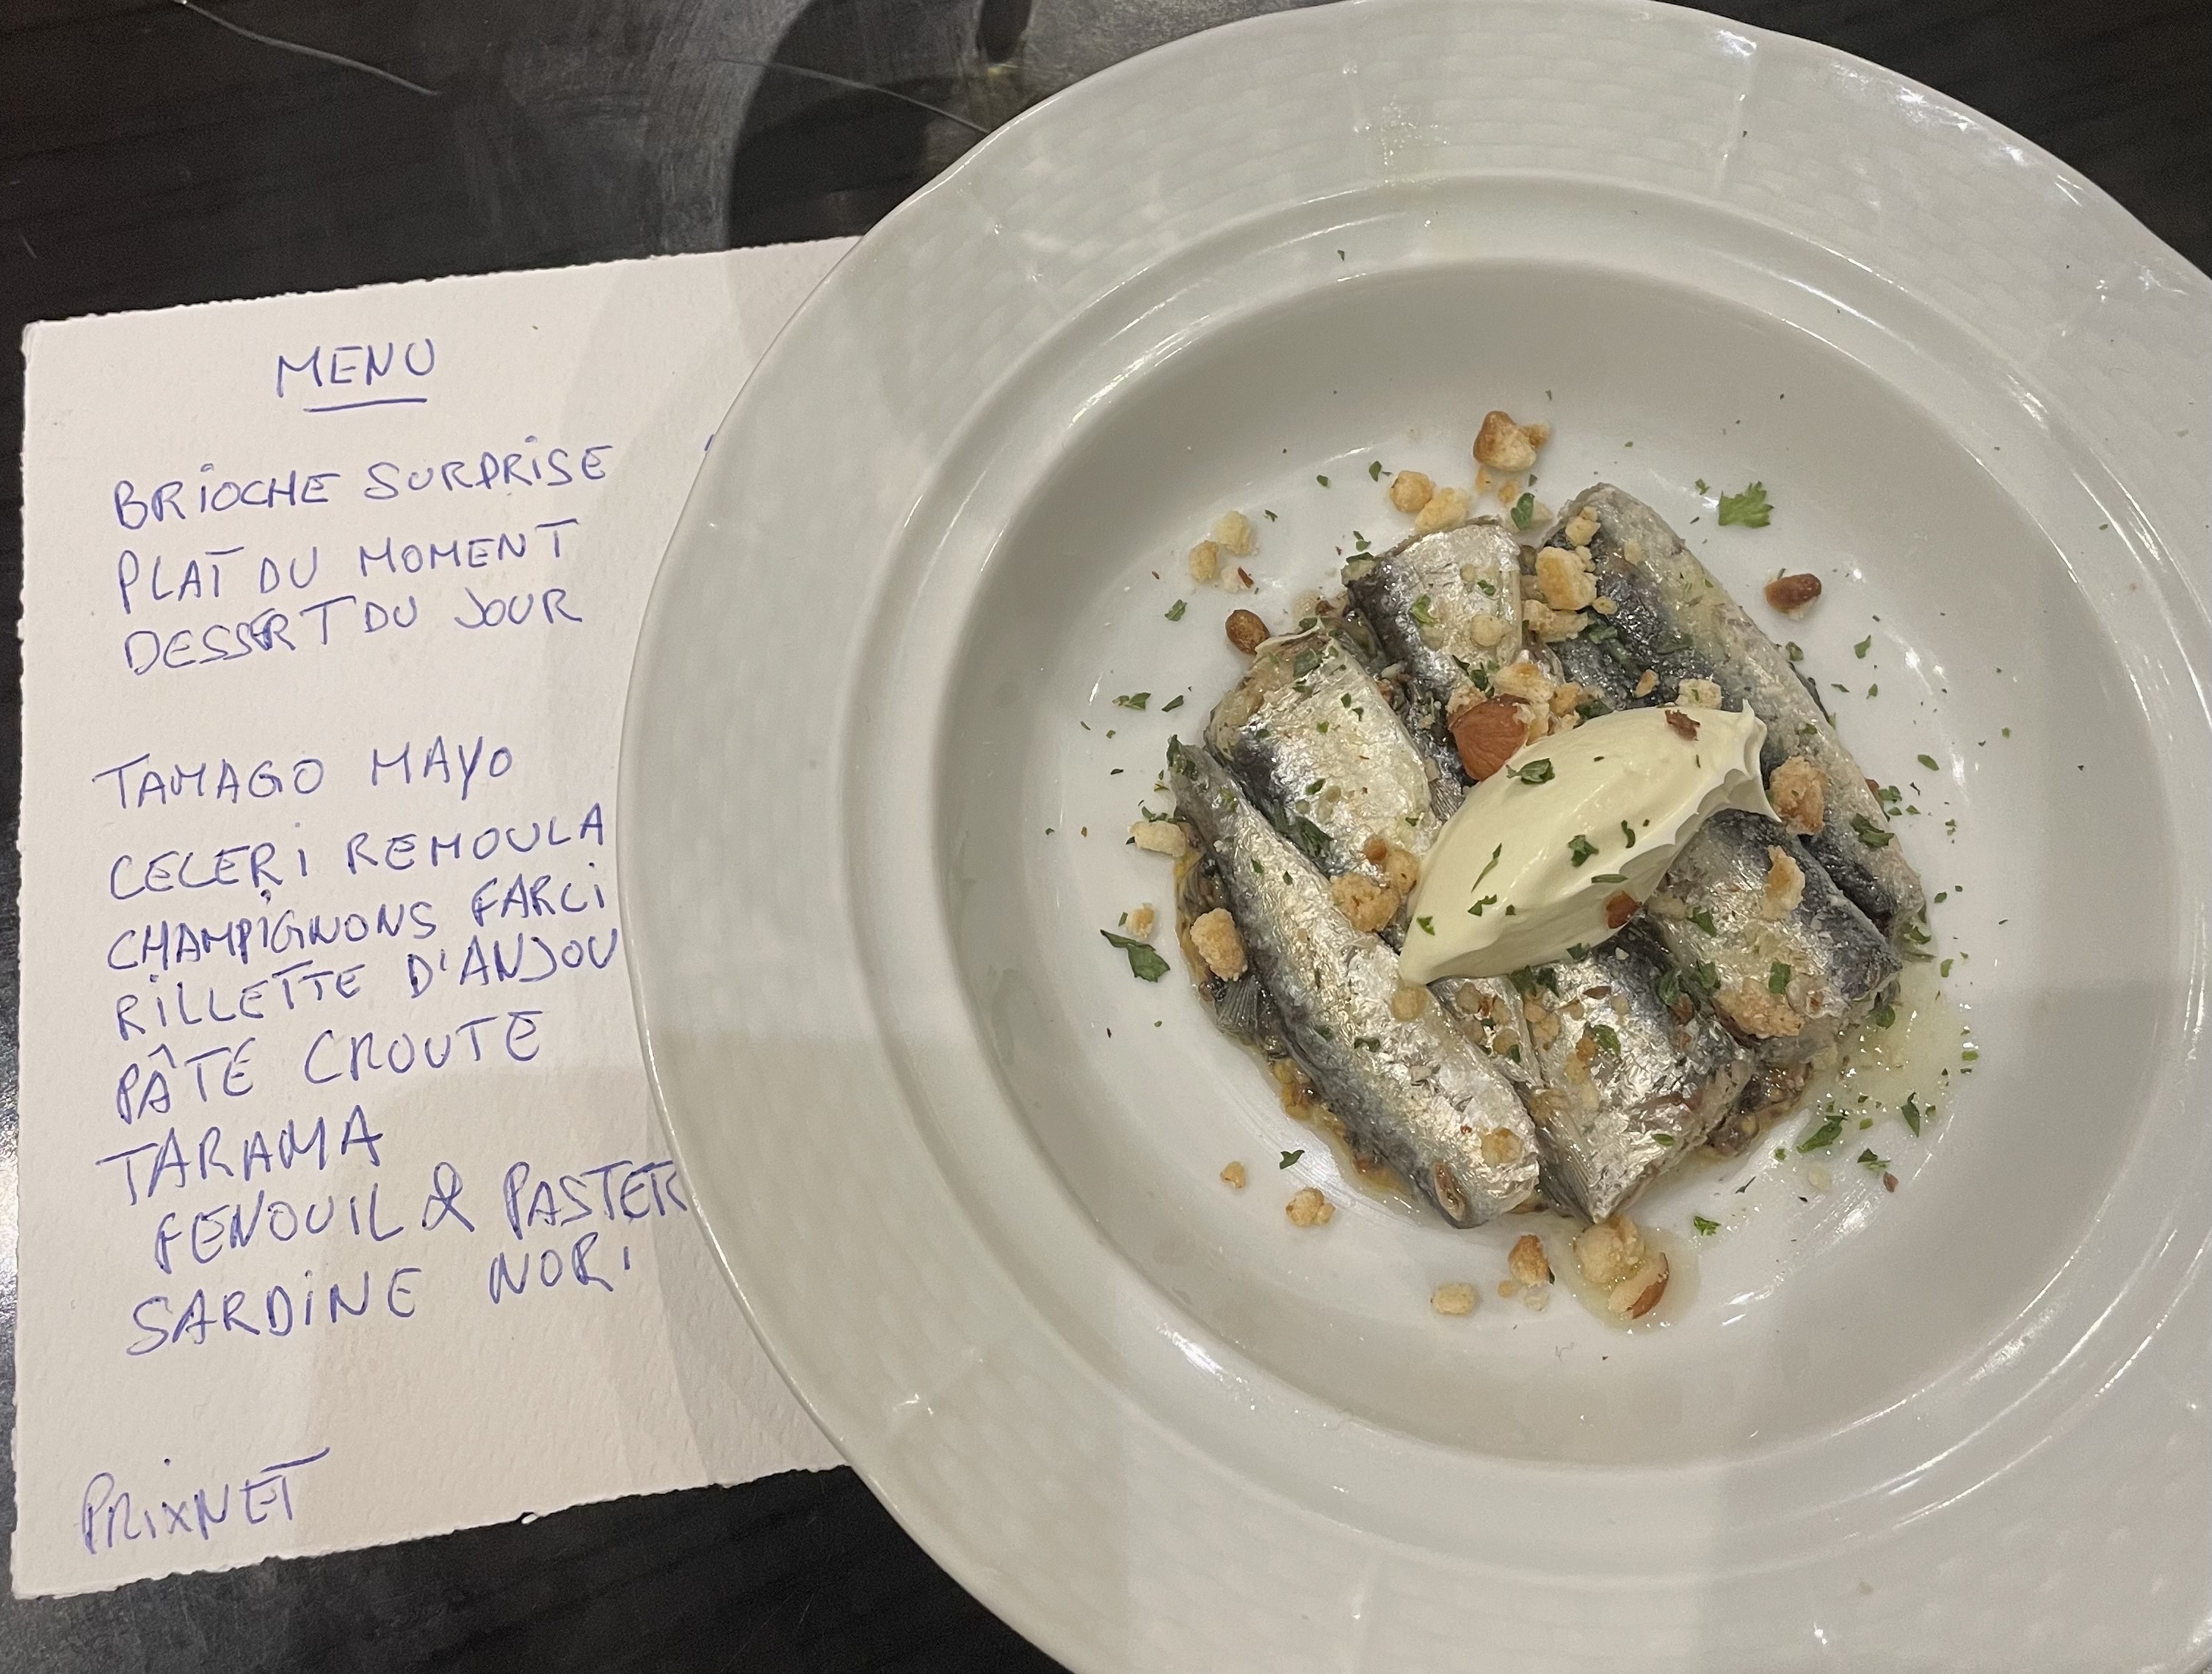 MENU
BRIOCHE SURPRISE
PLAT DU MOMENT
DESSERT DU JOUR
TAMAGO MAYO
CELERI REMOULA
CHAMPIGNONS FARCI
RILLETTE D'ANJOU
PÂTÉ CROUTE
TARAMA
FENOUIL & PASTER
SARDINE NORI
PRIXNET